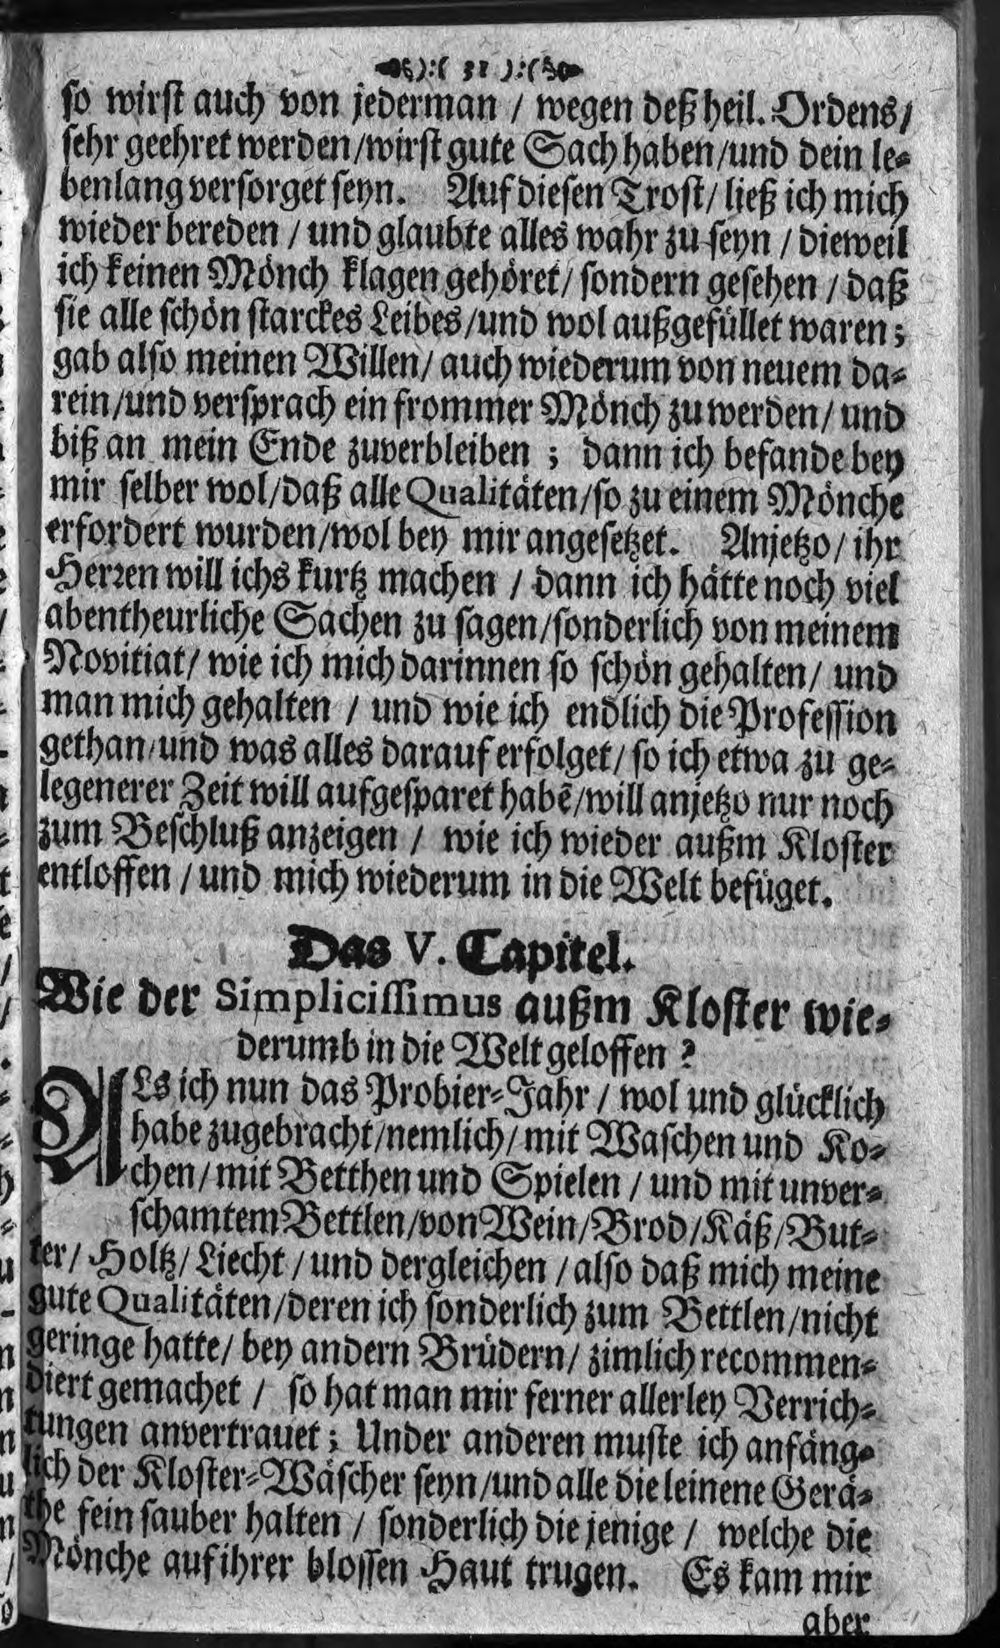 ):( 31 ):(
so wirst auch von jederman / wegen deß heil. Ordens /
sehr geehret werden / wirst gute Sach haben / und dein le-
benlang versorget seyn. Auf diesen Trost / ließ ich mich
wieder bereden / und glaubte alles wahr zu seyn / dieweil
ich keinen Mönch klagen gehöret / sondern gesehen / daß
sie alle schön starckes Leibes / und wol außgefüllet waren ;
gab also meinen Willen / auch wiederum von neuem da-
rein / und versprach ein frommer Mönch zu werden / und
biß an mein Ende zuverbleiben ; dann ich befande bey
mir selber wol / daß alle Qualitäten / so zu einem Mönche
erfordert wurden / wol bey mir angesetzet. Anjetzo / ihr
Herren will ichs kurtz machen / dann ich hätte noch viel
abentheurliche Sachen zu sagen / sonderlich von meinem
Novitiat / wie ich mich darinnen so schön gehalten / und
man mich gehalten / und wie ich endlich die Profession
gethan / und was alles darauf erfolget / so ich etwa zu ge-
legenerer Zeit will aufgesparet habẽ / will anjetzo nur noch
zum Beschluß anzeigen / wie ich wieder außm Kloster
entloffen / und mich wiederum in die Welt befüget.
Das V. Capitel.
Wie der Simplicissimus außm Kloster wie-
derumb in die Welt geloffen ?
ALs ich nun das Probier-Jahr / wol und glücklich
habe zugebracht / nemlich / mit Waschen und Ko-
chen / mit Betthen und Spielen / und mit unver-
schamtem Bettlen / von Wein / Brod / Käß / But-
ter / Holtz / Liecht / und dergleichen / also daß mich meine
gute Qualitäten / deren ich sonderlich zum Bettlen / nicht
geringe hatte / bey andern Brüdern / zimlich recommen-
diert gemachet / so hat man mir ferner allerley Verrich-
tungen anvertrauet ; Under anderen muste ich anfäng-
lich der Kloster-Wäscher seyn / und alle die leinene Gerä-
the fein sauber halten / sonderlich die jenige / welche die
Mönche auf ihrer blossen Haut trugen. Es kam mir
aber